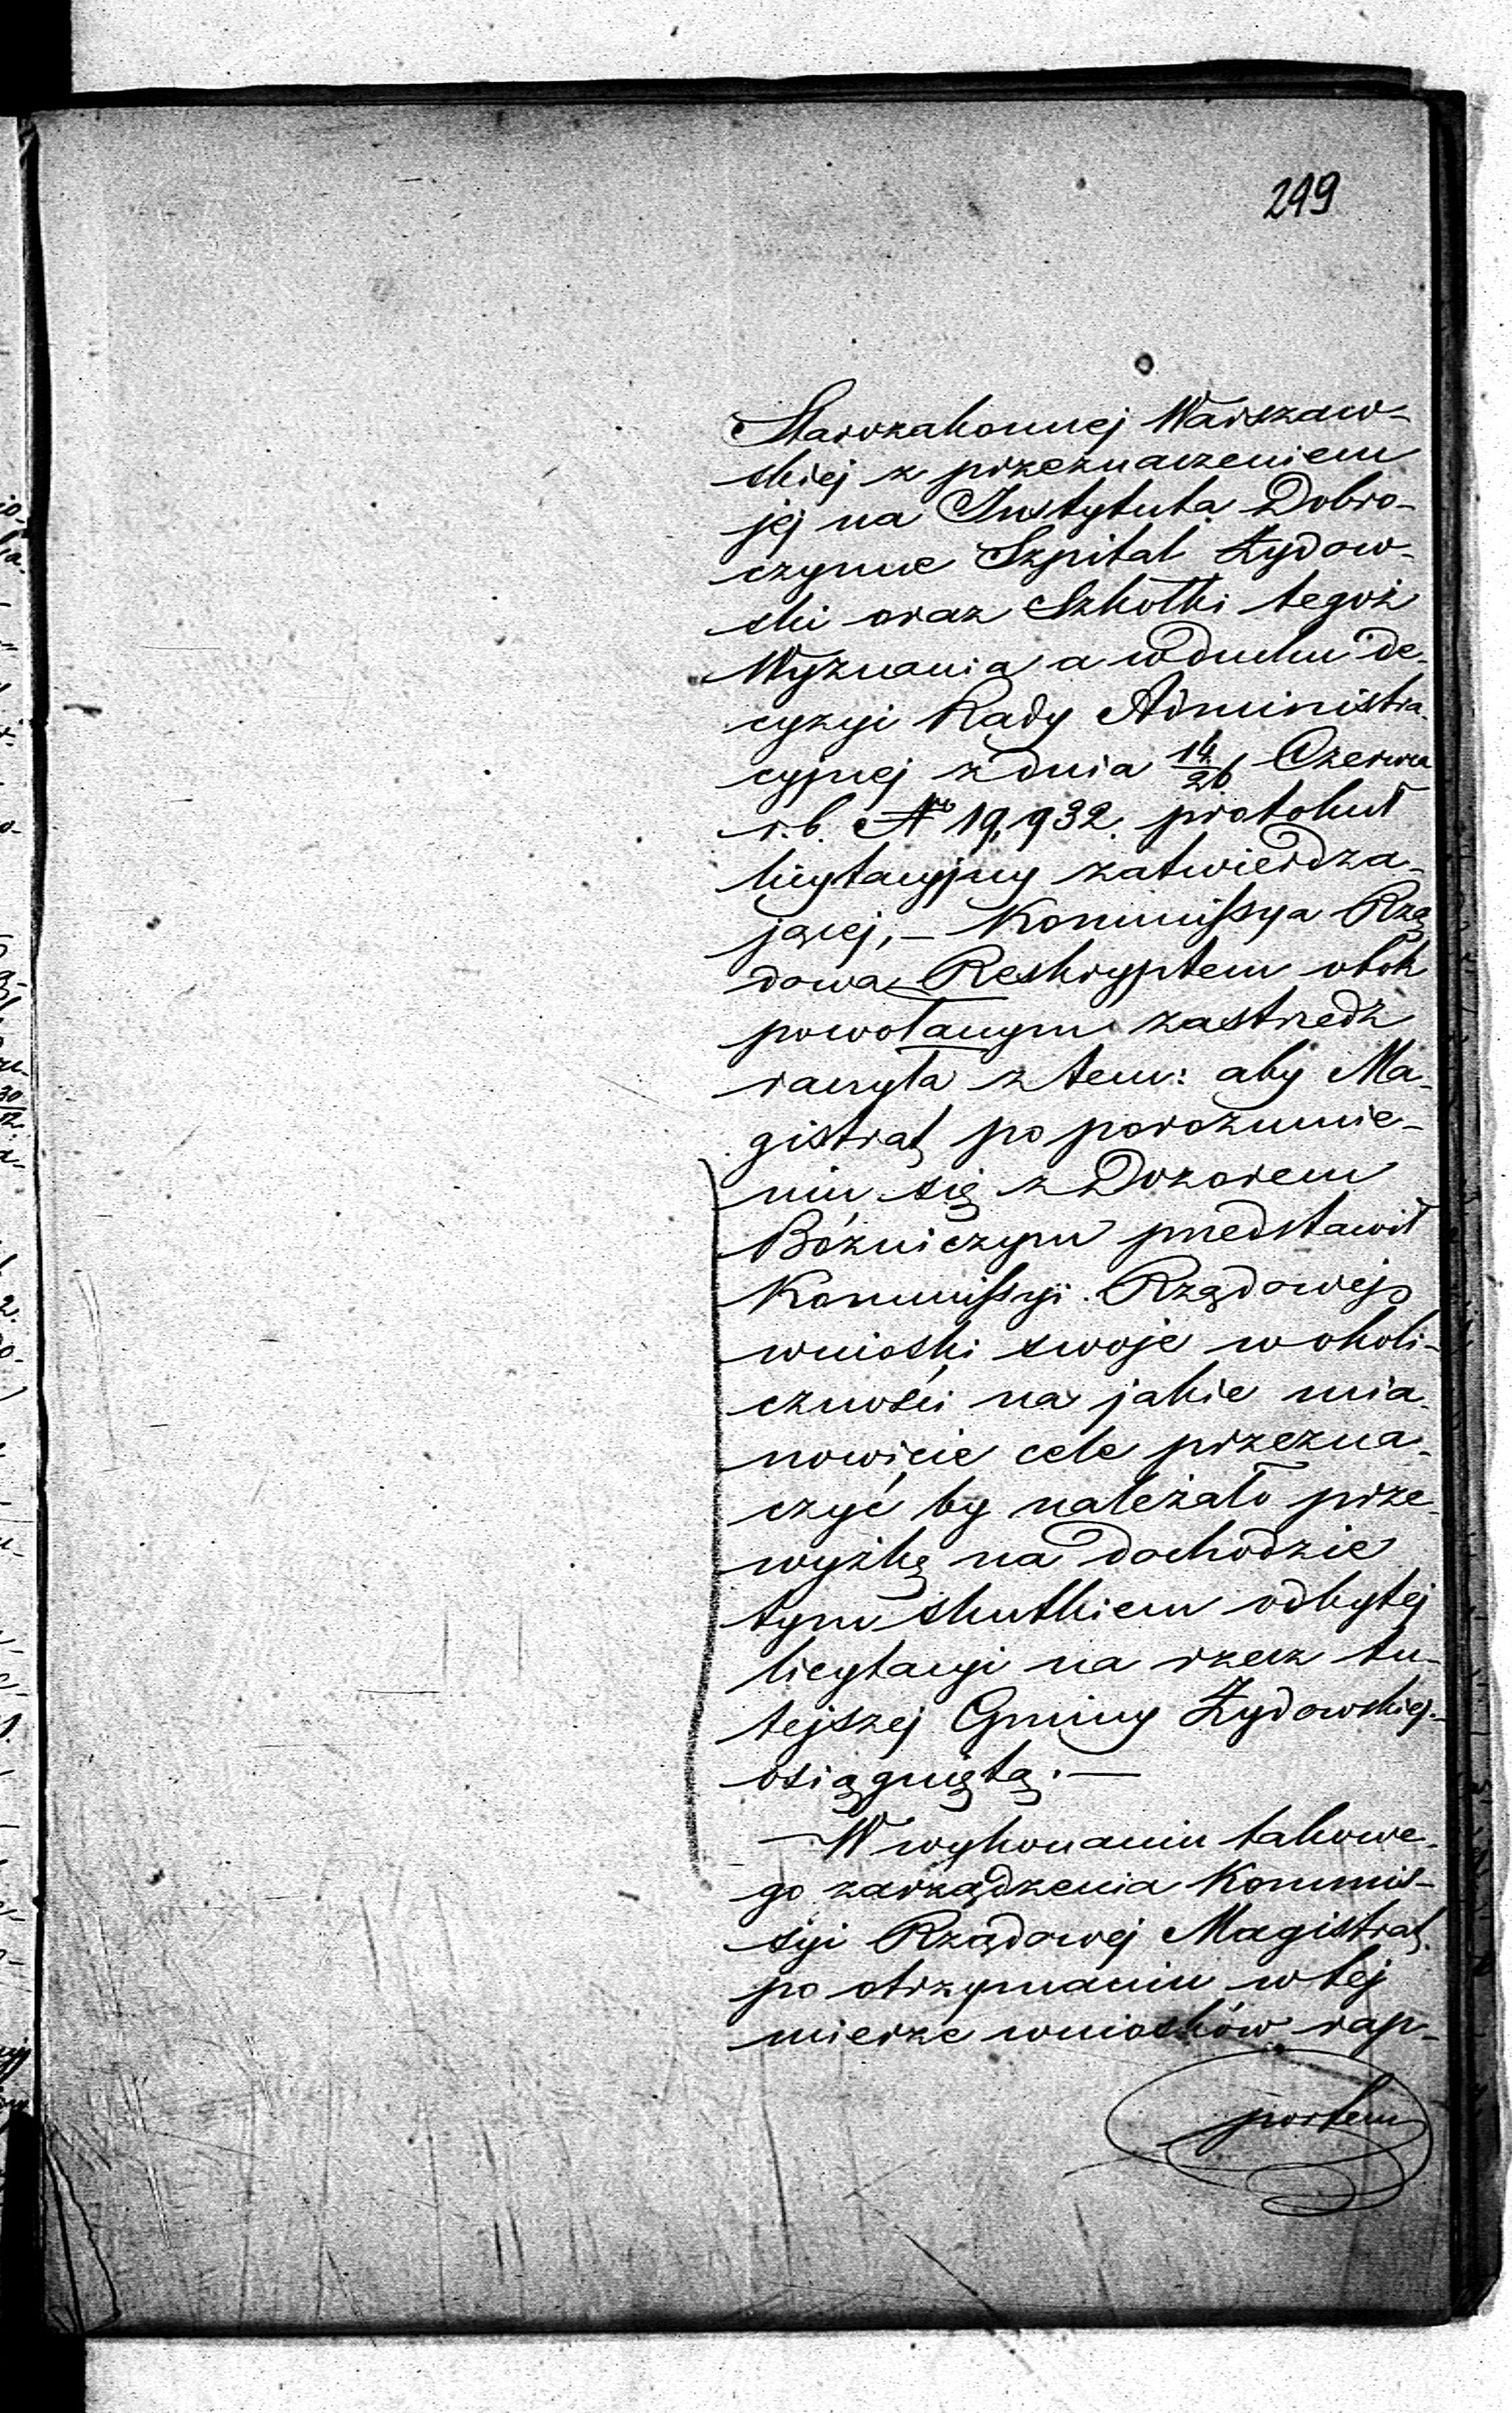 299
Starozakonnej Warszaw-
skiej z przeznaczeniem
jej na Instytuta Dobro-
czynne Szpital Żydow-
ski oraz Szkółki tegoż
Wyznania a w duchu de-
cyzyi Rady Administra-
cyjnej z dnia 14/26 Czerwca
r. b. No 19,932. protokuł
licytacyjny zatwierdza-
jącej, – Kommissya Rzą
dowa Reskryptem obok
powołanym zastrzedz
raczyła z tem: aby Ma-
gistrat po porozumie-
niu się z Dozorem
Bóżniczym przedstawił
Kommissyi Rządowej
wnioski swoje w okoli-
czności na jakie mia-
nowicie cele przezna-
czyć by należało prze
wyżkę na dochodzie
tym skutkiem odbytej
licytacyi na rzecz tu-
tejszej Gminy Żydowskiej
osiągniętą. —
W wykonaniu takowe-
go zarządzenia Kommis-
syi Rządowej Magistrat
po otrzymaniu w tej
mierze wniosków rap-
portem